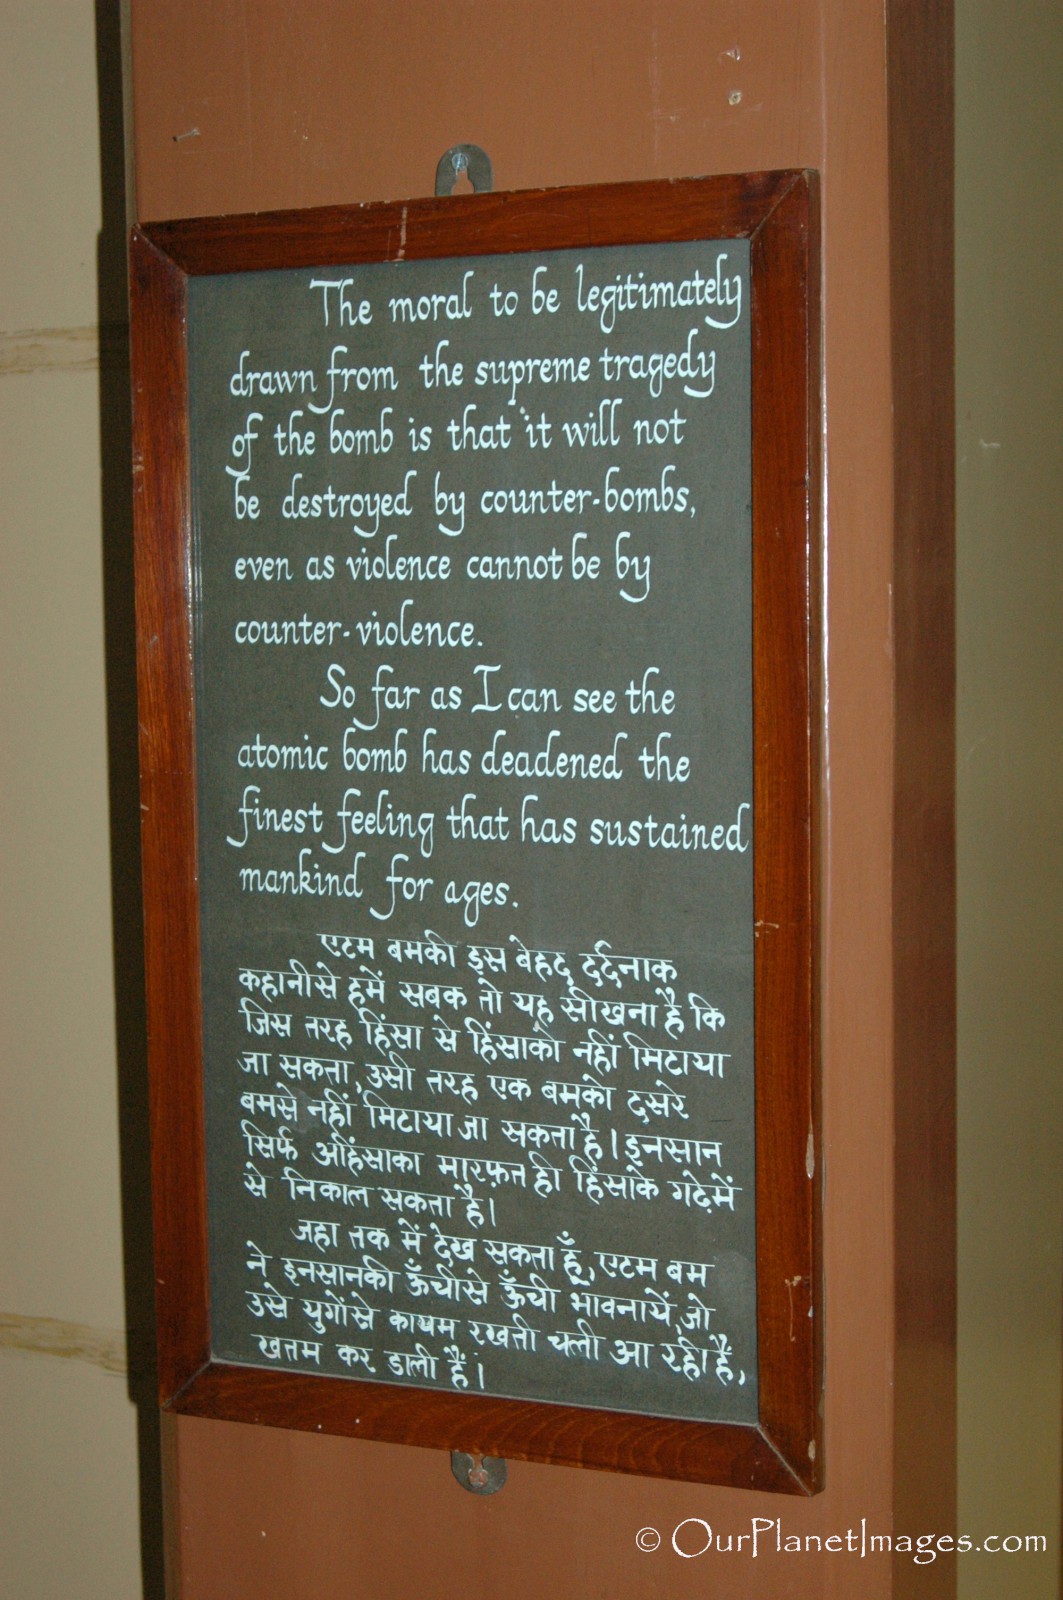 The moral to be legitimately
drawn from the supreme tragedy
of the bomb is that it will not
be destroyed by counter-bombs,
even as violence cannot be by
counter-violence.
So far as I can see the
atomic bomb has deadened the
finest feeling that has sustained
mankind for ages.
एटम बमकी इस बेहद दर्दनाक
कहानीसे हमें सबक तो यह सीखना है कि
जिस तरह हिंसा से हिंसाको नहीं मिटाया
जा सकता, उसी तरह एक बमको दुसरे
बमसे नहीं मिटाया जा सकता है। इनसान
सिर्फ अहिंसाका मारफ़त ही हिंसाके गढ़ेमें
से निकाल सकता है।
जहा तक में देख सकता हूँ, एटम बम
ने इनसानकी ऊँचीसे ऊँची भावनायें, जो
उसे युगोंसे कायम रखती चली आ रही हैं,
खतम कर डाली हैं।
© OurPlanetImages.com